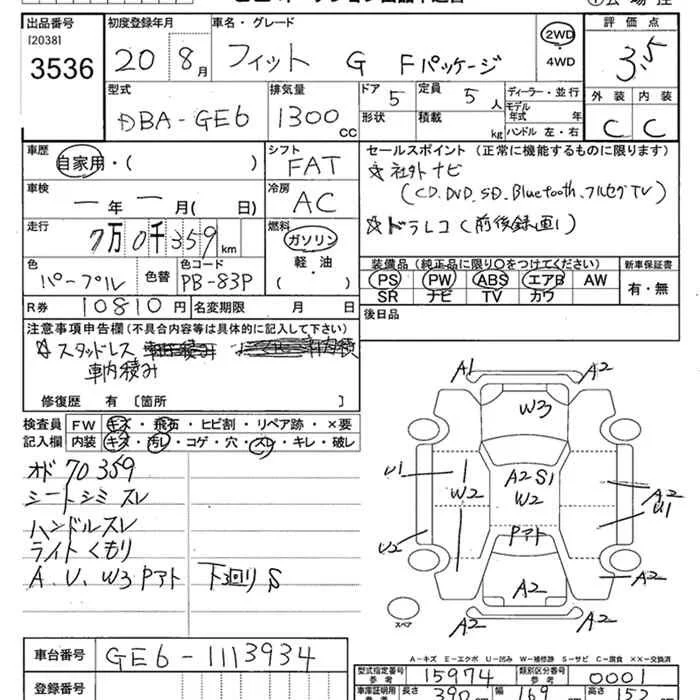 出品番号 初度登録年月 車名・グレード 評価点
[2038]
3536 20 8月 フィット G Fパッケージ 2WD ・ 4WD 3.5
型式 排気量 ドア 5 定員 5人 ディーラー・並行 外装 内装
DBA-GE6 1300cc 形状 積載 kg モデル年式 年 ハンドル 左・右 C C
車歴 シフト セールスポイント (正常に機能するものに限ります)
自家用・( ) FAT ☆社外ナビ
車検 冷房 (CD、DVD、SD、Bluetooth、フルセグTV)
一年一月( 日) AC ☆ドラレコ(前後録画)
走行 燃料
7万0千359km ガソリン
色 色替 色コード 軽・油 装備品 (純正品に限り○をつけてください) 新車保証書
パープル PB-83P ( ) PS PW ABS エアB AW 有・無
SR ナビ TV カワ
R券 10810円 名変期限 月 日 後日品
注意事項申告欄 (不具合内容等は具体的に記入して下さい)
☆スタッドレス
車内積み
修復歴 有 〔箇所 〕
検査員 FW キズ・飛石・ヒビ割・リペア跡・×要
記入欄 内装 キズ・汚レ・コゲ・穴・スレ・キレ・破レ
オド 70359
シートシミ スレ
ハンドルスレ
ライトくもり
A、U、W3 Pアト 下回りS
A1 A2
W3
U1 W2 A2 S1 A2
W2 U1
Pアト
U2 A2
A2
A2
スペア
A-キズ E-エクボ U-凹み W-補修跡 S-サビ C-腐食 ××-交換済
車台番号 GE6-1113934
型式指定番号 参考 15974 類別区分番号 参考 0001
登録番号 車庫証明用 長さ 390 幅 169 高さ 152